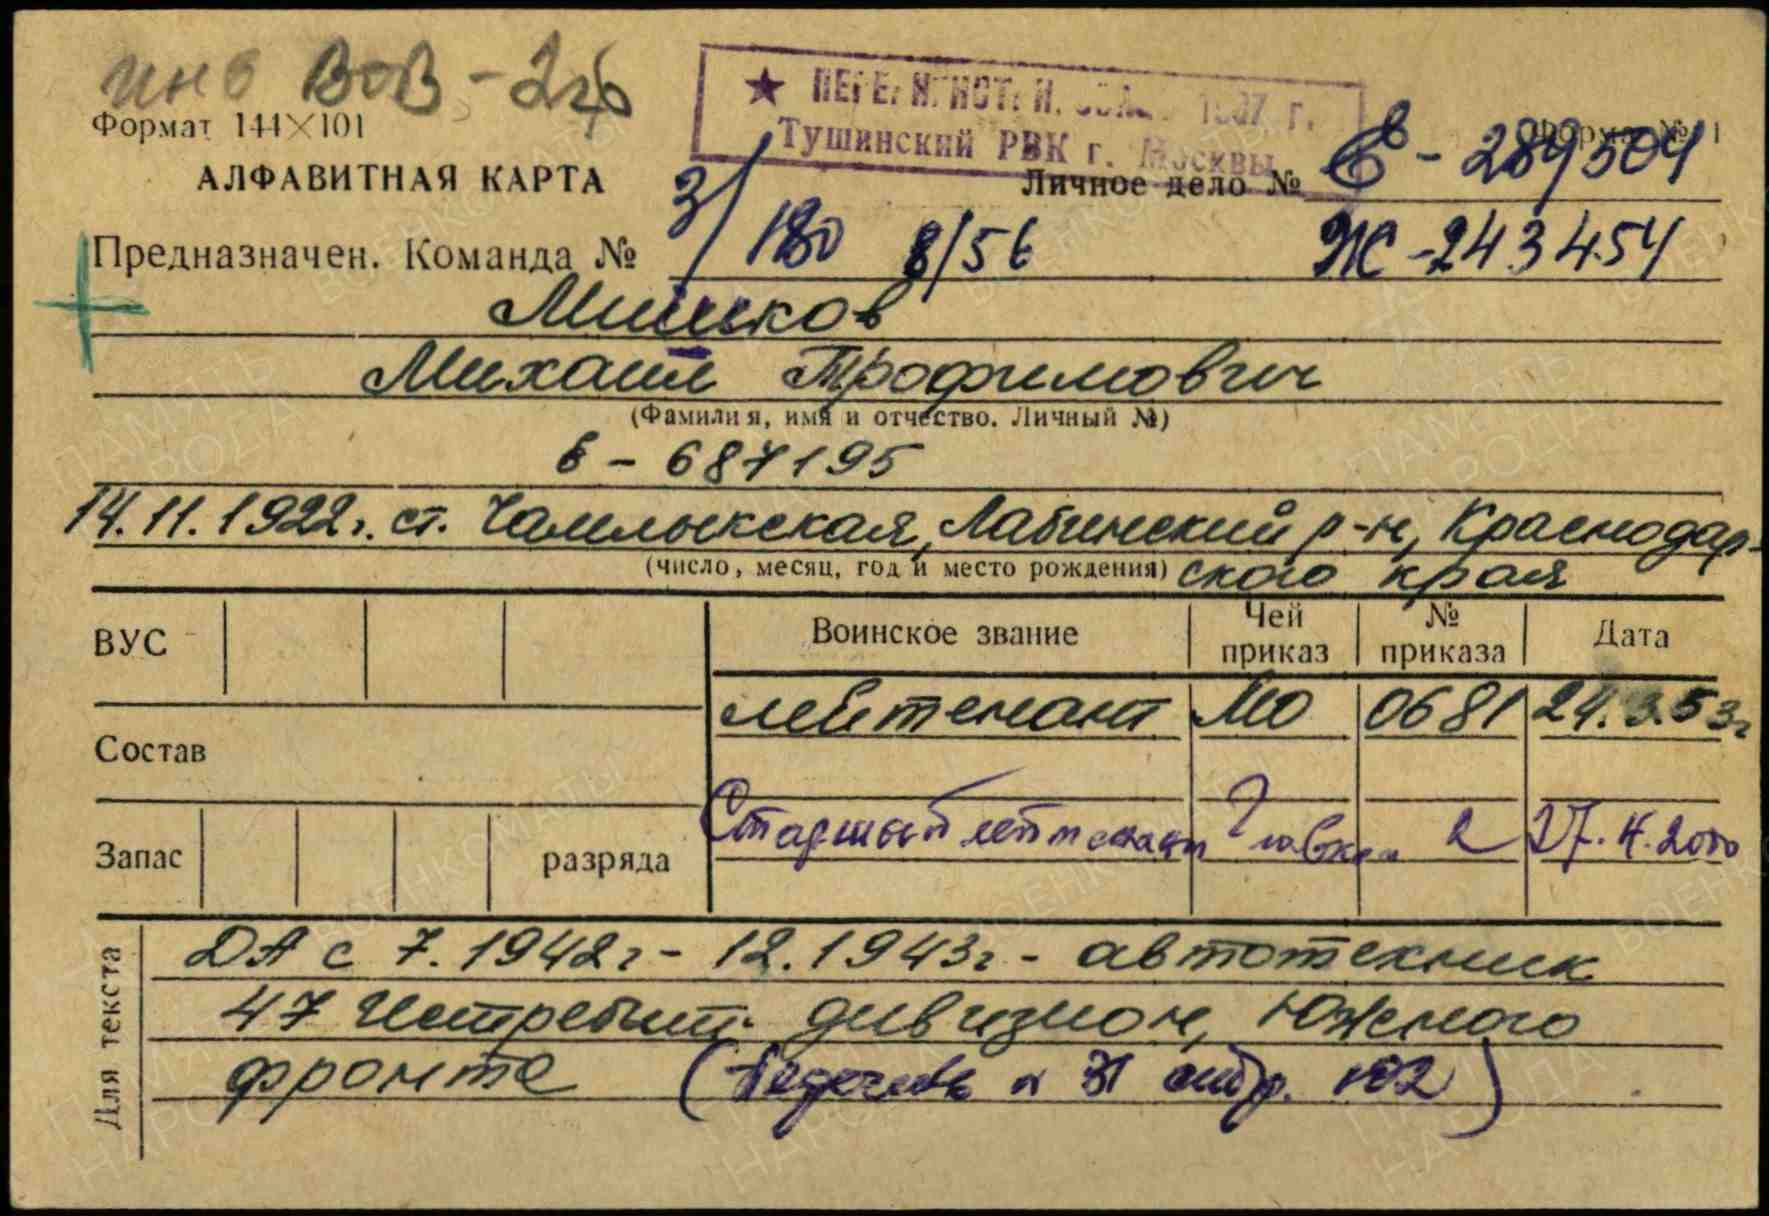 инв ВОВ - 2гр
★ ПЕРЕРЕГИСТРИ. 1987 г.
Тушинский РВК г. Москвы
Формат 144×101
Форма № 1
АЛФАВИТНАЯ КАРТА
Личное дело № 289504
Предназначен. Команда № 3/180 8/56
Ж-243454
Мишков
Михаил Трофимович
(Фамилия, имя и отчество. Личный №)
в - 687195
14.11.1922г. ст. Чамлыкская, Лабинский р-н, Краснодар-
(число, месяц, год и место рождения) ского края
ВУС
Воинское звание
Чей приказ
№ приказа
Дата
лейтенант МО 0681 24.3.53г
Состав
Старший лейтенант 2 27.4.2000
Запас
разряда
Для текста
ДА с 7.1942г - 12.1943г - автотехник
47 Истребит. дивизион, Южного
фронта